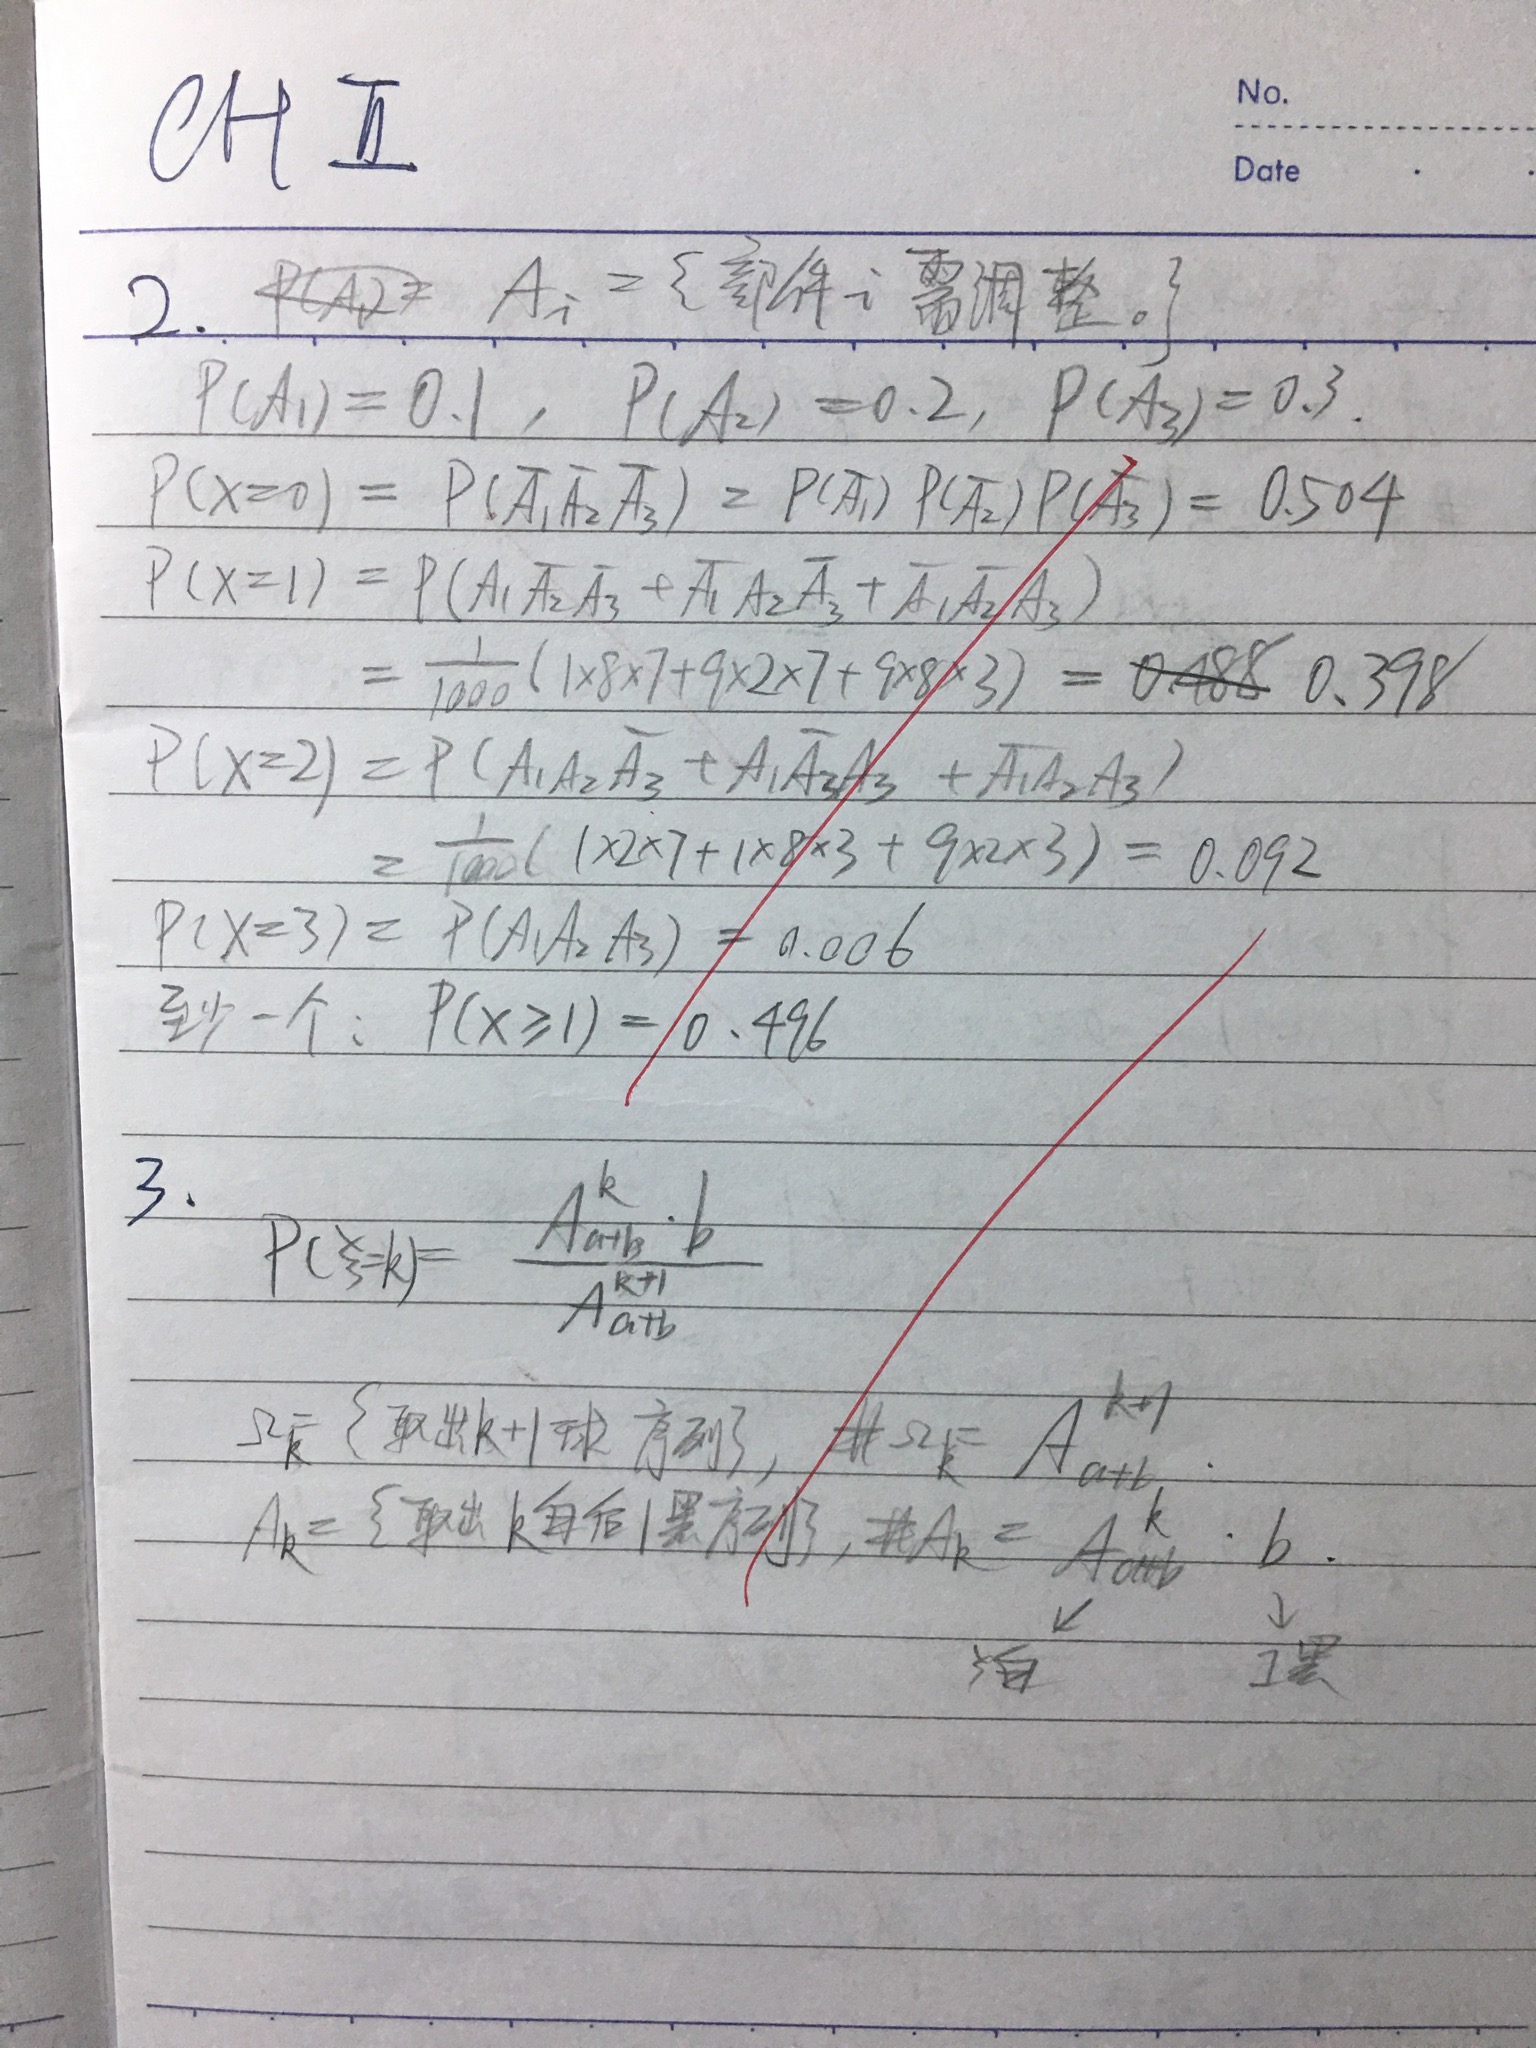 CH II
No.
Date
2. P(A₁)= Aᵢ = {部件i需调整。}
P(A₁) = 0.1, P(A₂) = 0.2, P(A₃) = 0.3.
P(X=0) = P(A̅₁A̅₂A̅₃) = P(A̅₁)P(A̅₂)P(A̅₃) = 0.504
P(X=1) = P(A₁A̅₂A̅₃ + A̅₁A₂A̅₃ + A̅₁A̅₂A₃)
= 1/1000 (1×8×7+9×2×7+9×8×3) = 0.488 0.398
P(X=2) = P(A₁A₂A̅₃ + A₁A̅₂A₃ + A̅₁A₂A₃)
= 1/1000 (1×2×7+1×8×3+9×2×3) = 0.092
P(X=3) = P(A₁A₂A₃) = 0.006
至少一个: P(X≥1) = 0.496
3.
P(ξ=k) = (A_{a+b}^{k}·b)/(A_{a+b}^{k+1})
Ω_k = {取出k+1球序列}, #Ω_k = A_{a+b}^{k+1}.
A_k = {取出k白后1黑序列}, #A_k = A_{a+b}^{k}·b.
↙ ↓
白 1黑